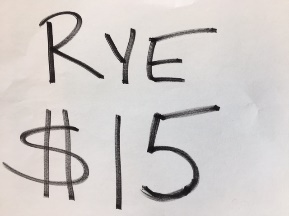 RYE
$15